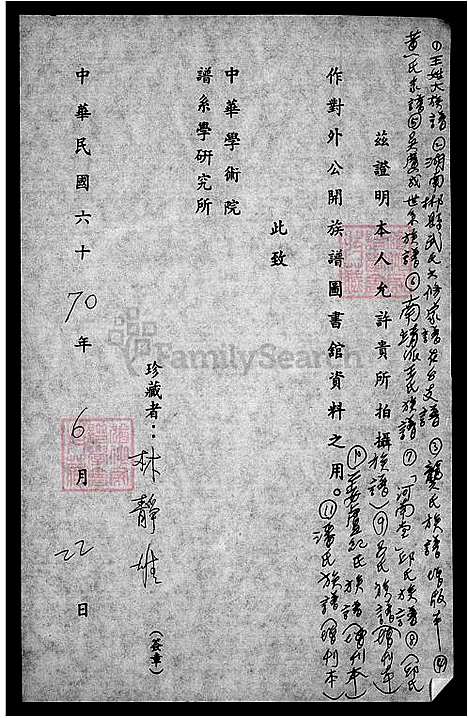 ①王姓大族譜②湖南郴縣武氏六修家譜
族譜增版本④
黃氏宗譜⑤吳慶成世系族譜⑥南靖張王氏族譜⑦「河南堂」邱氏族譜⑧邱氏
茲證明本人允許貴所拍攝族譜⑨呂氏族譜(增刊本)
作對外公開族譜圖書館資料之用。
族譜(增刊本)⑪潘氏族譜(增刊本)
此致
中華學術院
譜系學研究所
珍藏者:林靜雄(簽章)
中華民國六十70年6月22日
FamilySearch